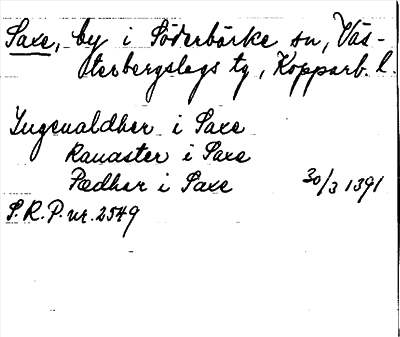 Saxe, by i Söderbärke sn, Väs-
terbergslags tg, Kopparb. l.
Ingeualdher i Saxe
Rauaster i Saxe
Pædher i Saxe 30/3 1391
S.R.P. nr. 2549